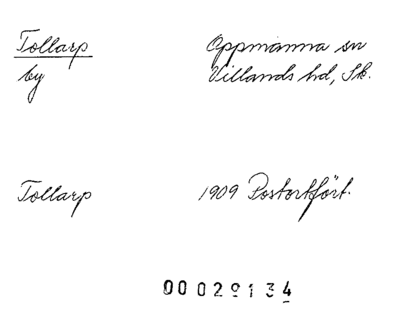 Tollarp Oppmanna sn
by Villands hd, Sk.
Tollarp 1909 Postortfört.
00029134